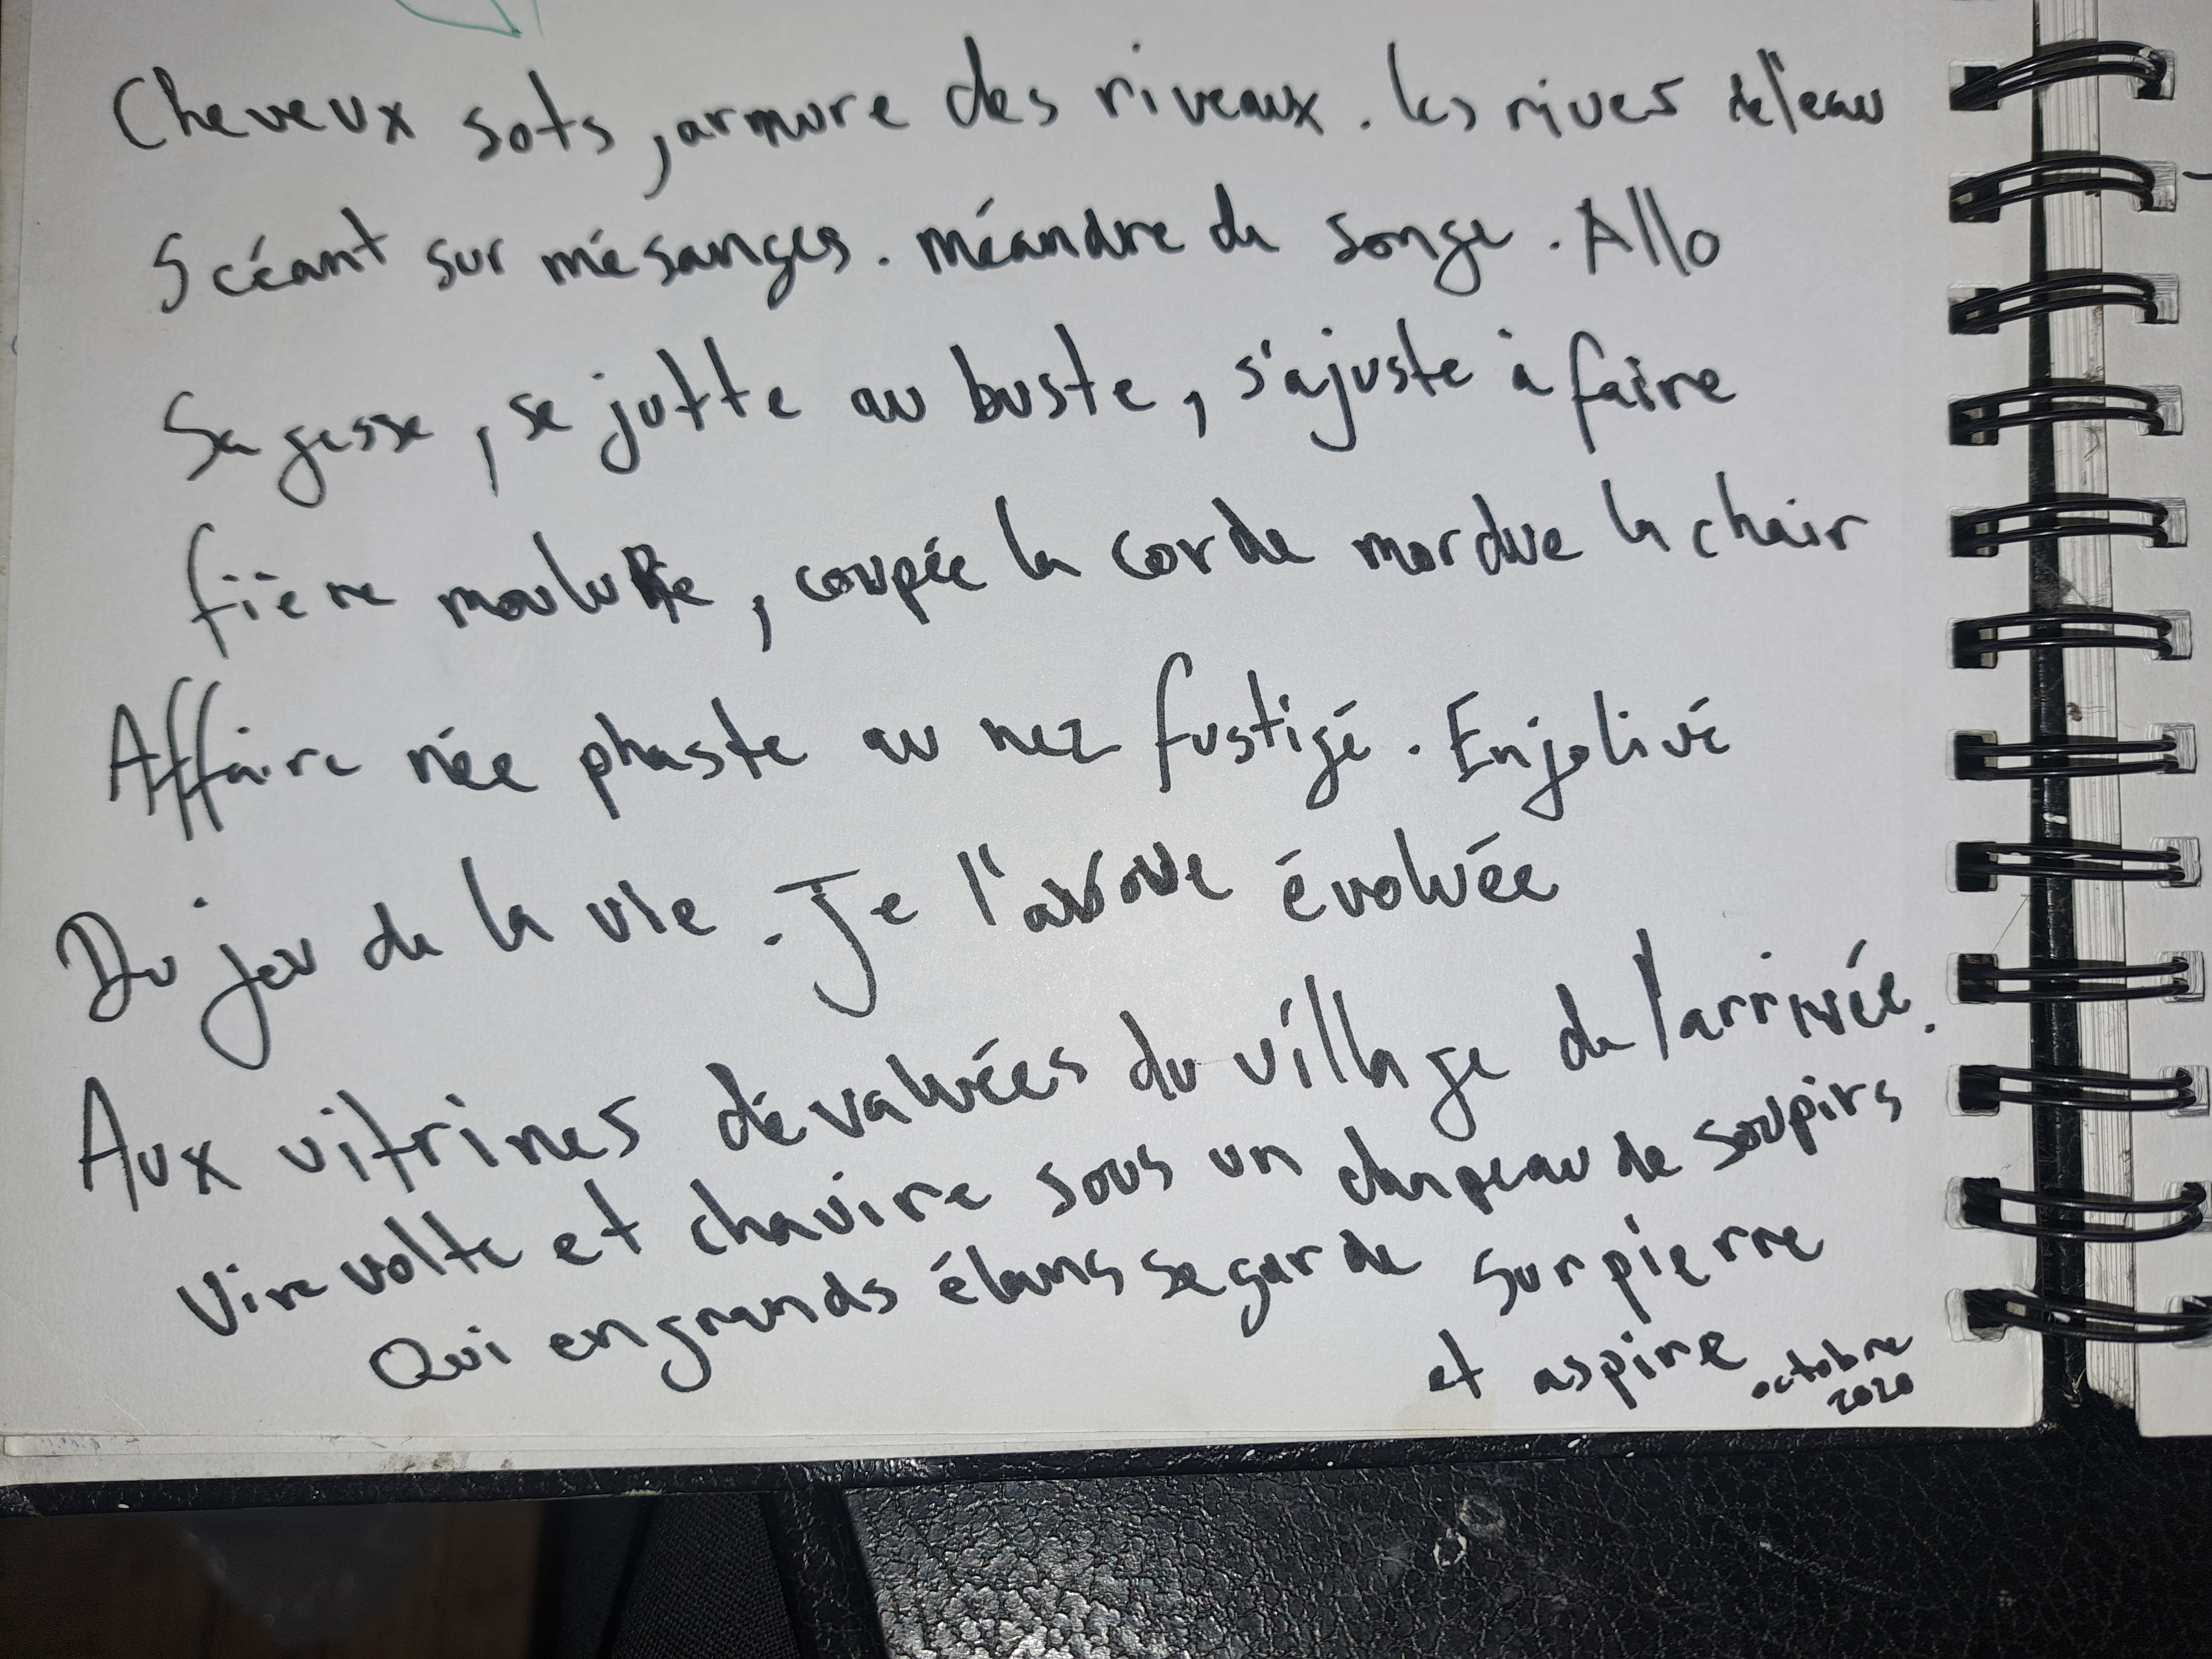 Cheveux sots, armure des riveaux. les rives de l'eau
Scéant sur mésanges. méandre de songe. Allo
Sagesse, se jutte au buste, s'ajuste à faire
fière moulure, coupée la corde mordue la chair
Affaire née phaste au nez fustigé. Enjolivé
Du jeu de la vie. Je l'avoue évoluée
Aux vitrines dévaluées du village de l'arrivée.
Vire volte et chavire sous un chapeau de soupirs
Qui en grands élans se garde sur pierre
et aspire
octobre
2020